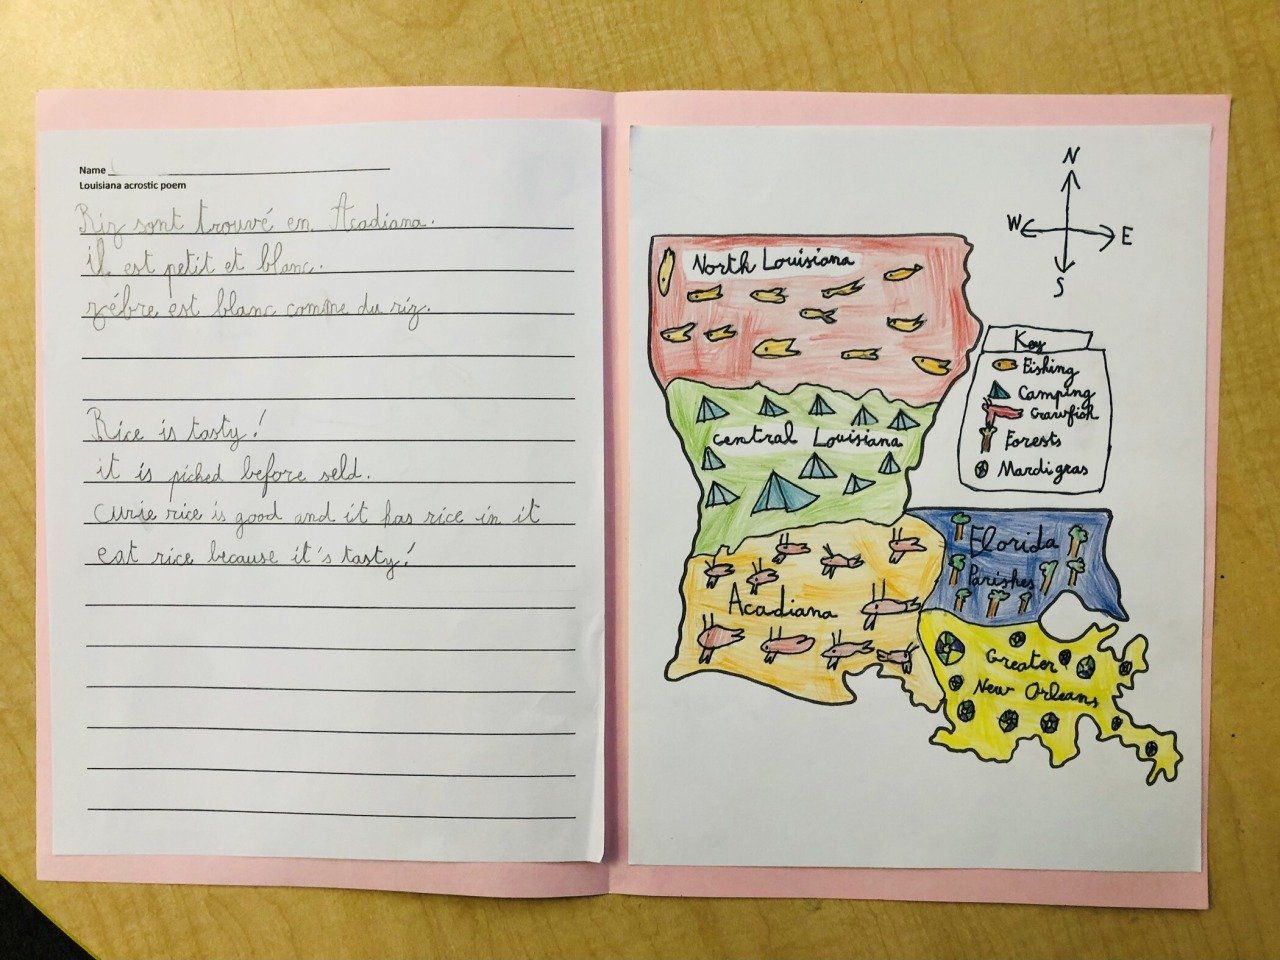 Name
Louisiana acrostic poem
Riz sont trouvé en Acadiana.
il est petit et blanc.
zébre est blanc comme du riz.
Rice is tasty!
it is picked before seld.
curie rice is good and it has rice in it
eat rice because it's tasty!
N
W E
S
North Louisiana
Central Louisiana
Acadiana
Florida
Parishes
Greater
New Orleans
Key
Fishing
Camping
Crawfish
Forests
Mardi gras